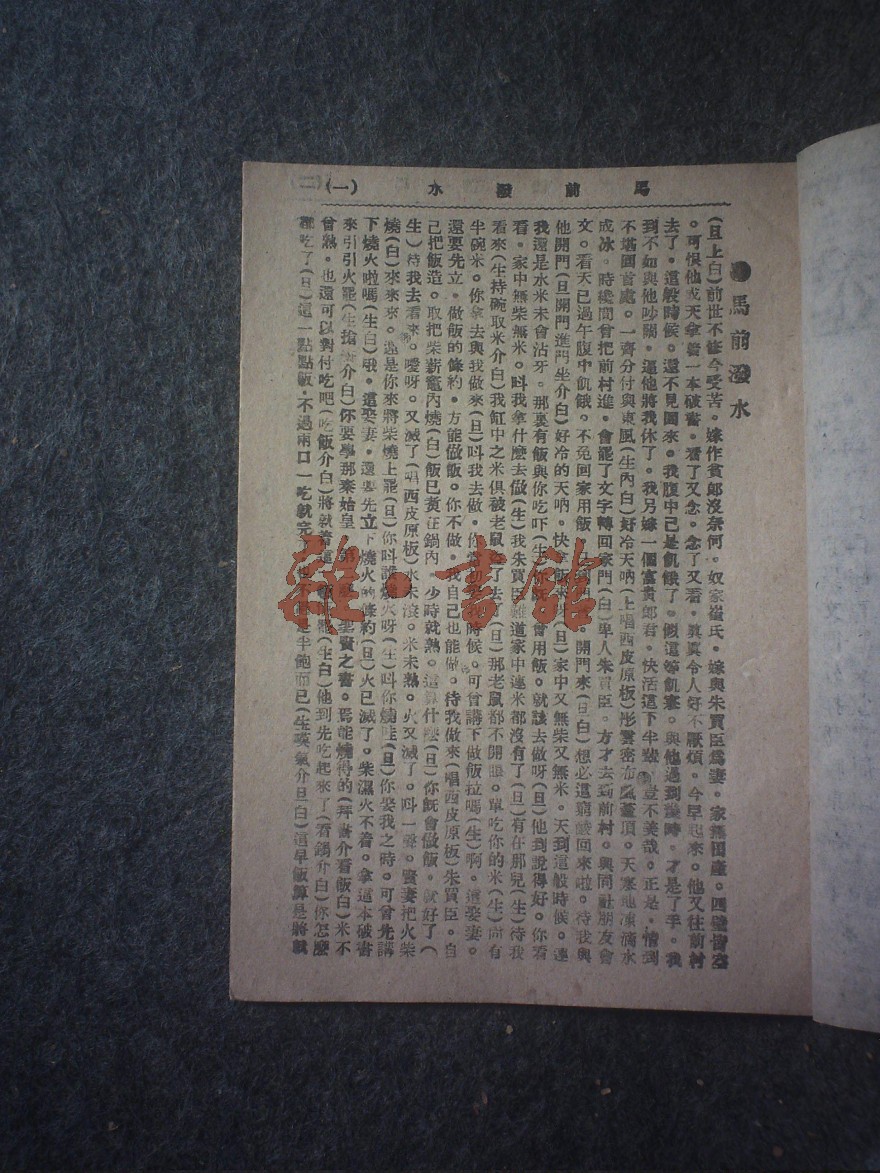 馬前潑水 (一)
●馬前潑水
(旦上白)前世不修今受苦。嫁作貧郎沒奈何。奴家崔氏。嫁與朱買臣爲妻。家無田產。四壁皆空
。可恨他成天拿着一本破書。看了又念。念了又看。眞眞令人好不厭煩。今早起來。他又往前村
去了。這般時候。還不見回來。我腹中已是飢餓了。似這等飢寒。與他過到幾時。才是了手。我
到不如與他吵鬧。逼他將我休了。我另嫁一個富貴郎君。快活這下半世。豈不美哉。正是。情到
不堪回首處。一齊分付與東風(生內白)好冷天吶(上唱西皮原板)彤雲密布風蓋頂。天寒地凍滴水
成冰。時纔間曾把前村進。會罷了文字轉回家門(白)卑人朱買臣。方才去到前村。與同社朋友會
文。看天已過午腹中飢餓。不免回家用飯 開門來(旦白)想必這窮酸回來啦。待我與
他開門(旦開門進門坐介白)好冷的天吶。快拿飯來 (旦)家中又無柴又無米。天到這般時候。連
我還是水米未曾沾牙。那裏有飯與你吃吓(生) 曾用飯。就該去做呀(旦)他到說得好。你看
看。家中無柴無米。呌我拿什麼去做(生)我朱買臣難道家中連米都沒有了(旦)有在那兒(生)待我
看來(生持碗取米介白)我缸中之米俱被老鼠 了去了(旦)那老鼠都不開眼。單吃你的米(生)尚有
半碗米。你拿去與我做來(旦)呌我去做。你當初 時候。可曾講下做飯拉嗎(生)啊。這娶妻。
還要先立。做飯的條約。方能做飯。你不做。我自己也能做。待我做來(唱西皮原板)朱買臣。自
己把飯造。取把柴薪竈內燒(白)飯已煑在鍋內。少時就熟。這算什麼(旦)你旣會做飯。就好了(
生)待我去看來。噯呀。又滅了(唱西皮原板)水未滾。米未熟。火又滅了。呌一聲。賢妻把火柴
燒(白)來來來。還是你來將柴燒上罷(旦)你呌誰燒火呀(生)呌你燒哇(旦)你娶我之時。可曾先講
下燒火啦嗎(生白)哦。這娶妻。還要先立下燒火的條約(旦)火已滅了。柴濕火不着。拿這本破書
來引引火罷(生搶書介白)你要學那秦始皇 聖賢之書。焉能燒得的(拜書介看飯白)米不
曾熟。也還可以對付吃吧(吃飯介白)將就着這 (生白)他到先吃起來了(看鍋介白)你怎麼
吃了(旦)這一點點飯。不過兩口一吃就完了 是半飽而已(生嘆氣介旦白)這早飯算是將就
雜·書館